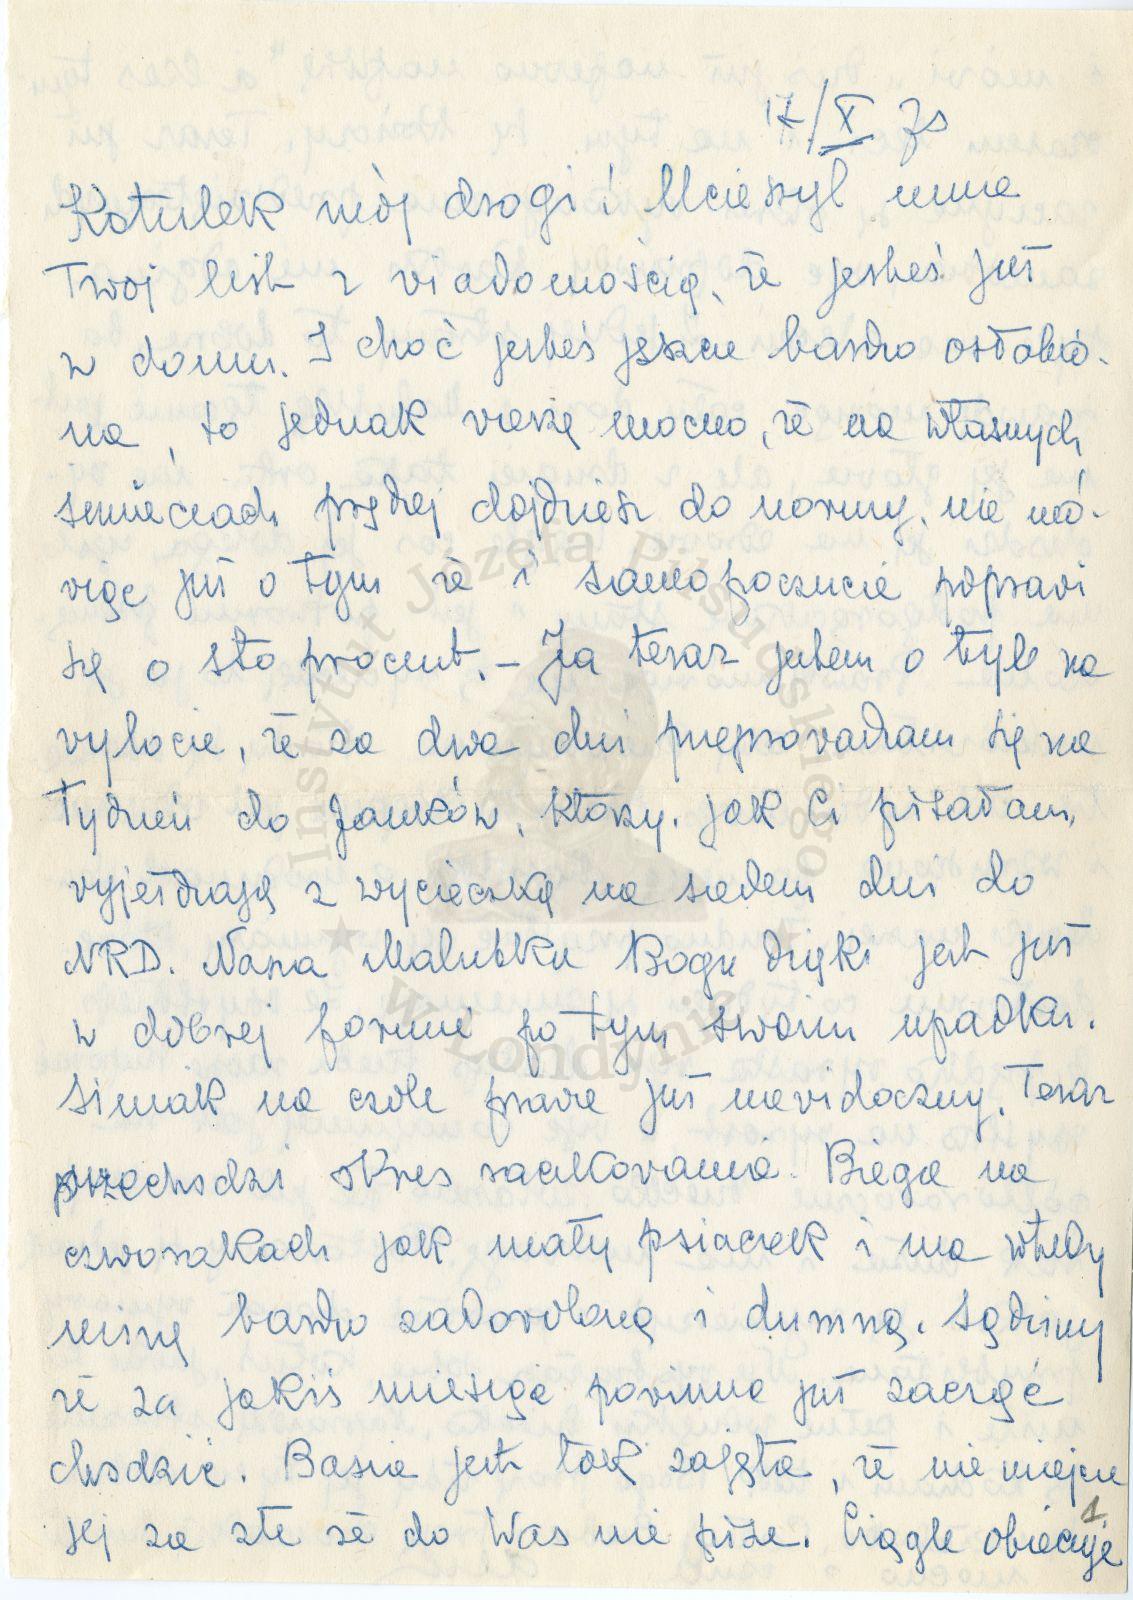 17/X 78
Kotulek mój drogi! Ucieszył mnie
Twój list z wiadomością, że jesteś już
w domu. I choć jesteś jeszcze bardzo osłabio-
na, to jednak wierzę mocno, że na własnych
śmieciach prędzej dojdziesz do normy, nie mó-
wiąc już o tym że i samopoczucie poprawi
się o sto procent. – Ja teraz jestem o tyle na
wylocie, że za dwa dni przeprowadzam się na
tydzień do Janków, którzy, jak Ci pisałam,
wyjeżdżają z wycieczką na siedem dni do
NRD. Nasza Malutka Bogu dzięki jest już
w dobrej formie po tym swoim upadku.
Siniak na czole prawie już niewidoczny. Teraz
przechodzi okres raczkowania. Biega na
czworakach jak mały psiaczek i ma wtedy
minę bardzo zadowoloną i dumną. Sądzimy
że za jakiś miesiąc powinna już zacząć
chodzić. Basia jest tak zajęta, że nie miejcie
jej za złe że do Was nie pisze. Ciągle obiecuje
1
Instytut Józefa Piłsudskiego
w Londynie